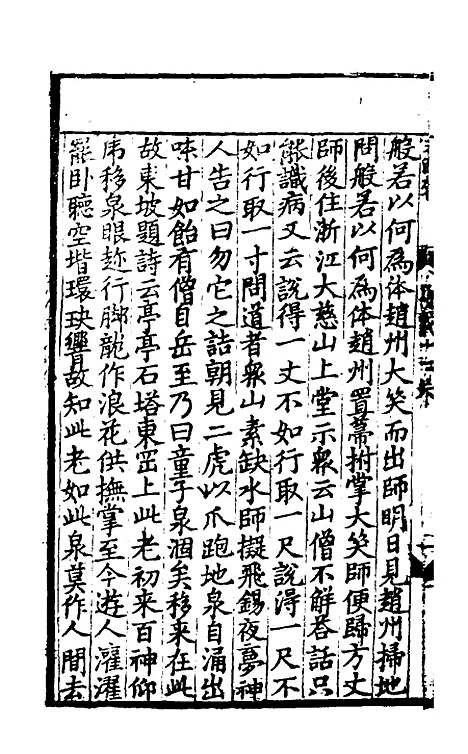 般若以何為体趙州大笑而出師明日見趙州掃地
問般若以何為体趙州置箒拊掌大笑師便歸方丈
師後住浙江大慈山上堂示衆云山僧不解荅話只
能識病又云說得一丈不如行取一尺說得一尺不
如行取一寸問道者衆山素缺水師擬飛錫夜夢神
人告之曰勿它之詰朝見二虎以爪跑地泉自涌出
味甘如飴有僧自岳至乃曰童子泉涸矣移来在此
故東坡題詩云亭亭石塔東罡上此老初来百神仰
虎移泉眼趂行脚龍作浪花供撫掌至今遊人灌濯
罷卧聽空堦環玦響故知此老如此泉莫作人間去